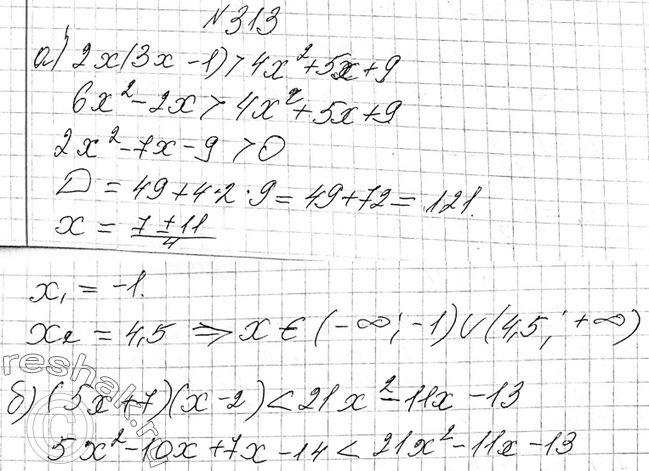 №313
а) 2x(3x-1)>4x²+5x+9
6x²-2x>4x²+5x+9
2x²-7x-9>0
D=49+4·2·9=49+72=121.
x=(7±11)/4
x₁=-1.
x₂=4,5 ⇒ x∈(-∞;-1)∪(4,5;+∞)
б) (5x+7)(x-2)<21x²-11x-13
5x²-10x+7x-14<21x²-11x-13